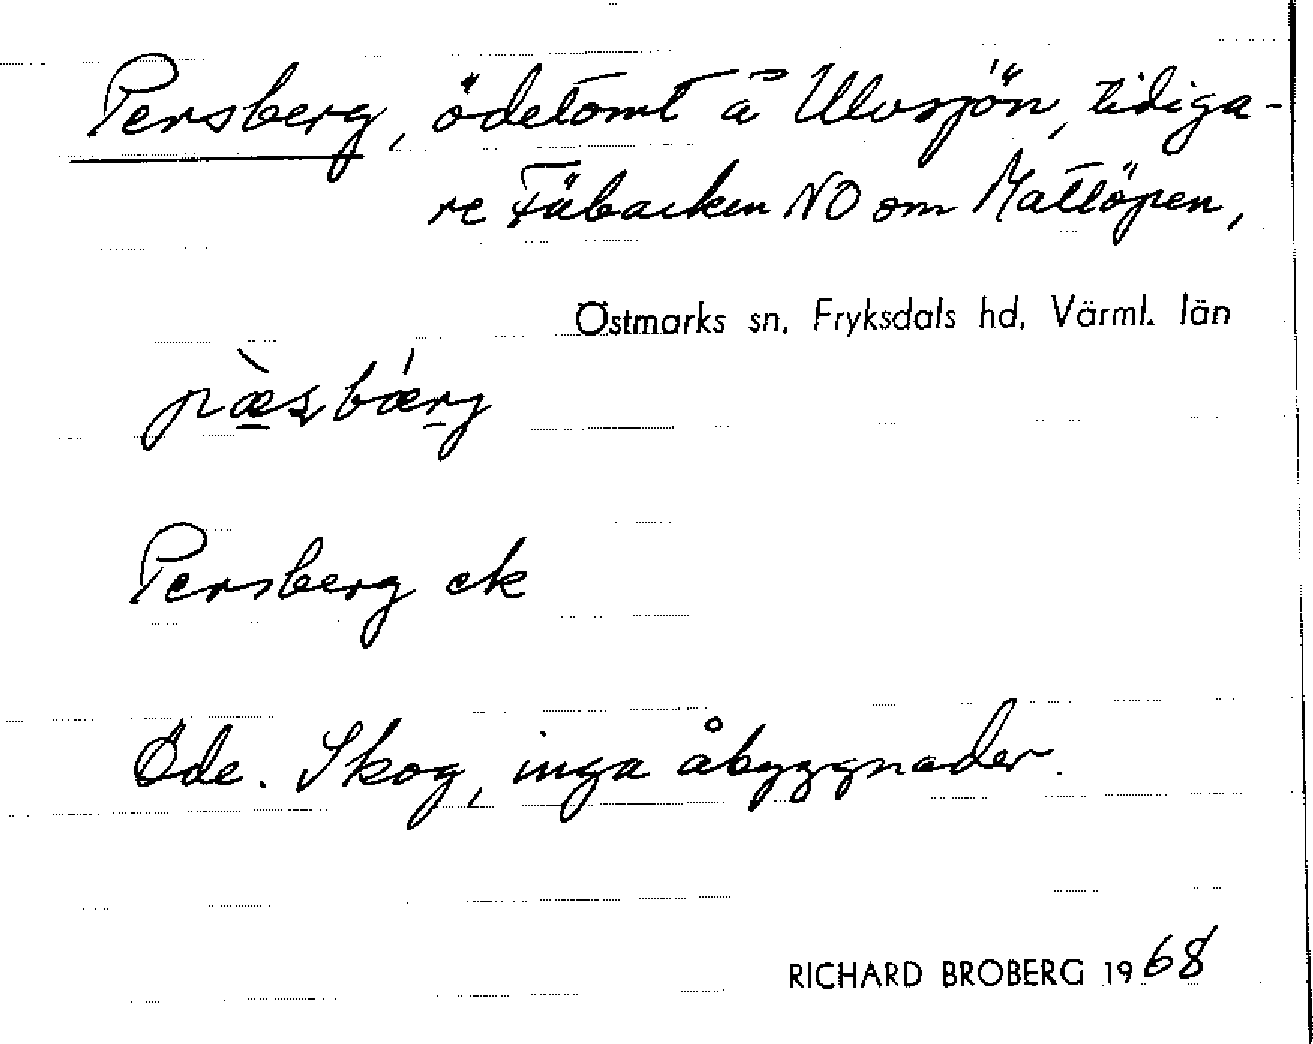 Persberg, ödetomt å Ulvsjön, tidiga-
re Fäbacken NO om Mattlöpen,
Östmarks sn, Fryksdals hd, Värml. län
Persberg ek
Öde. Skog, inga åbyggnader.
RICHARD BROBERG 1968